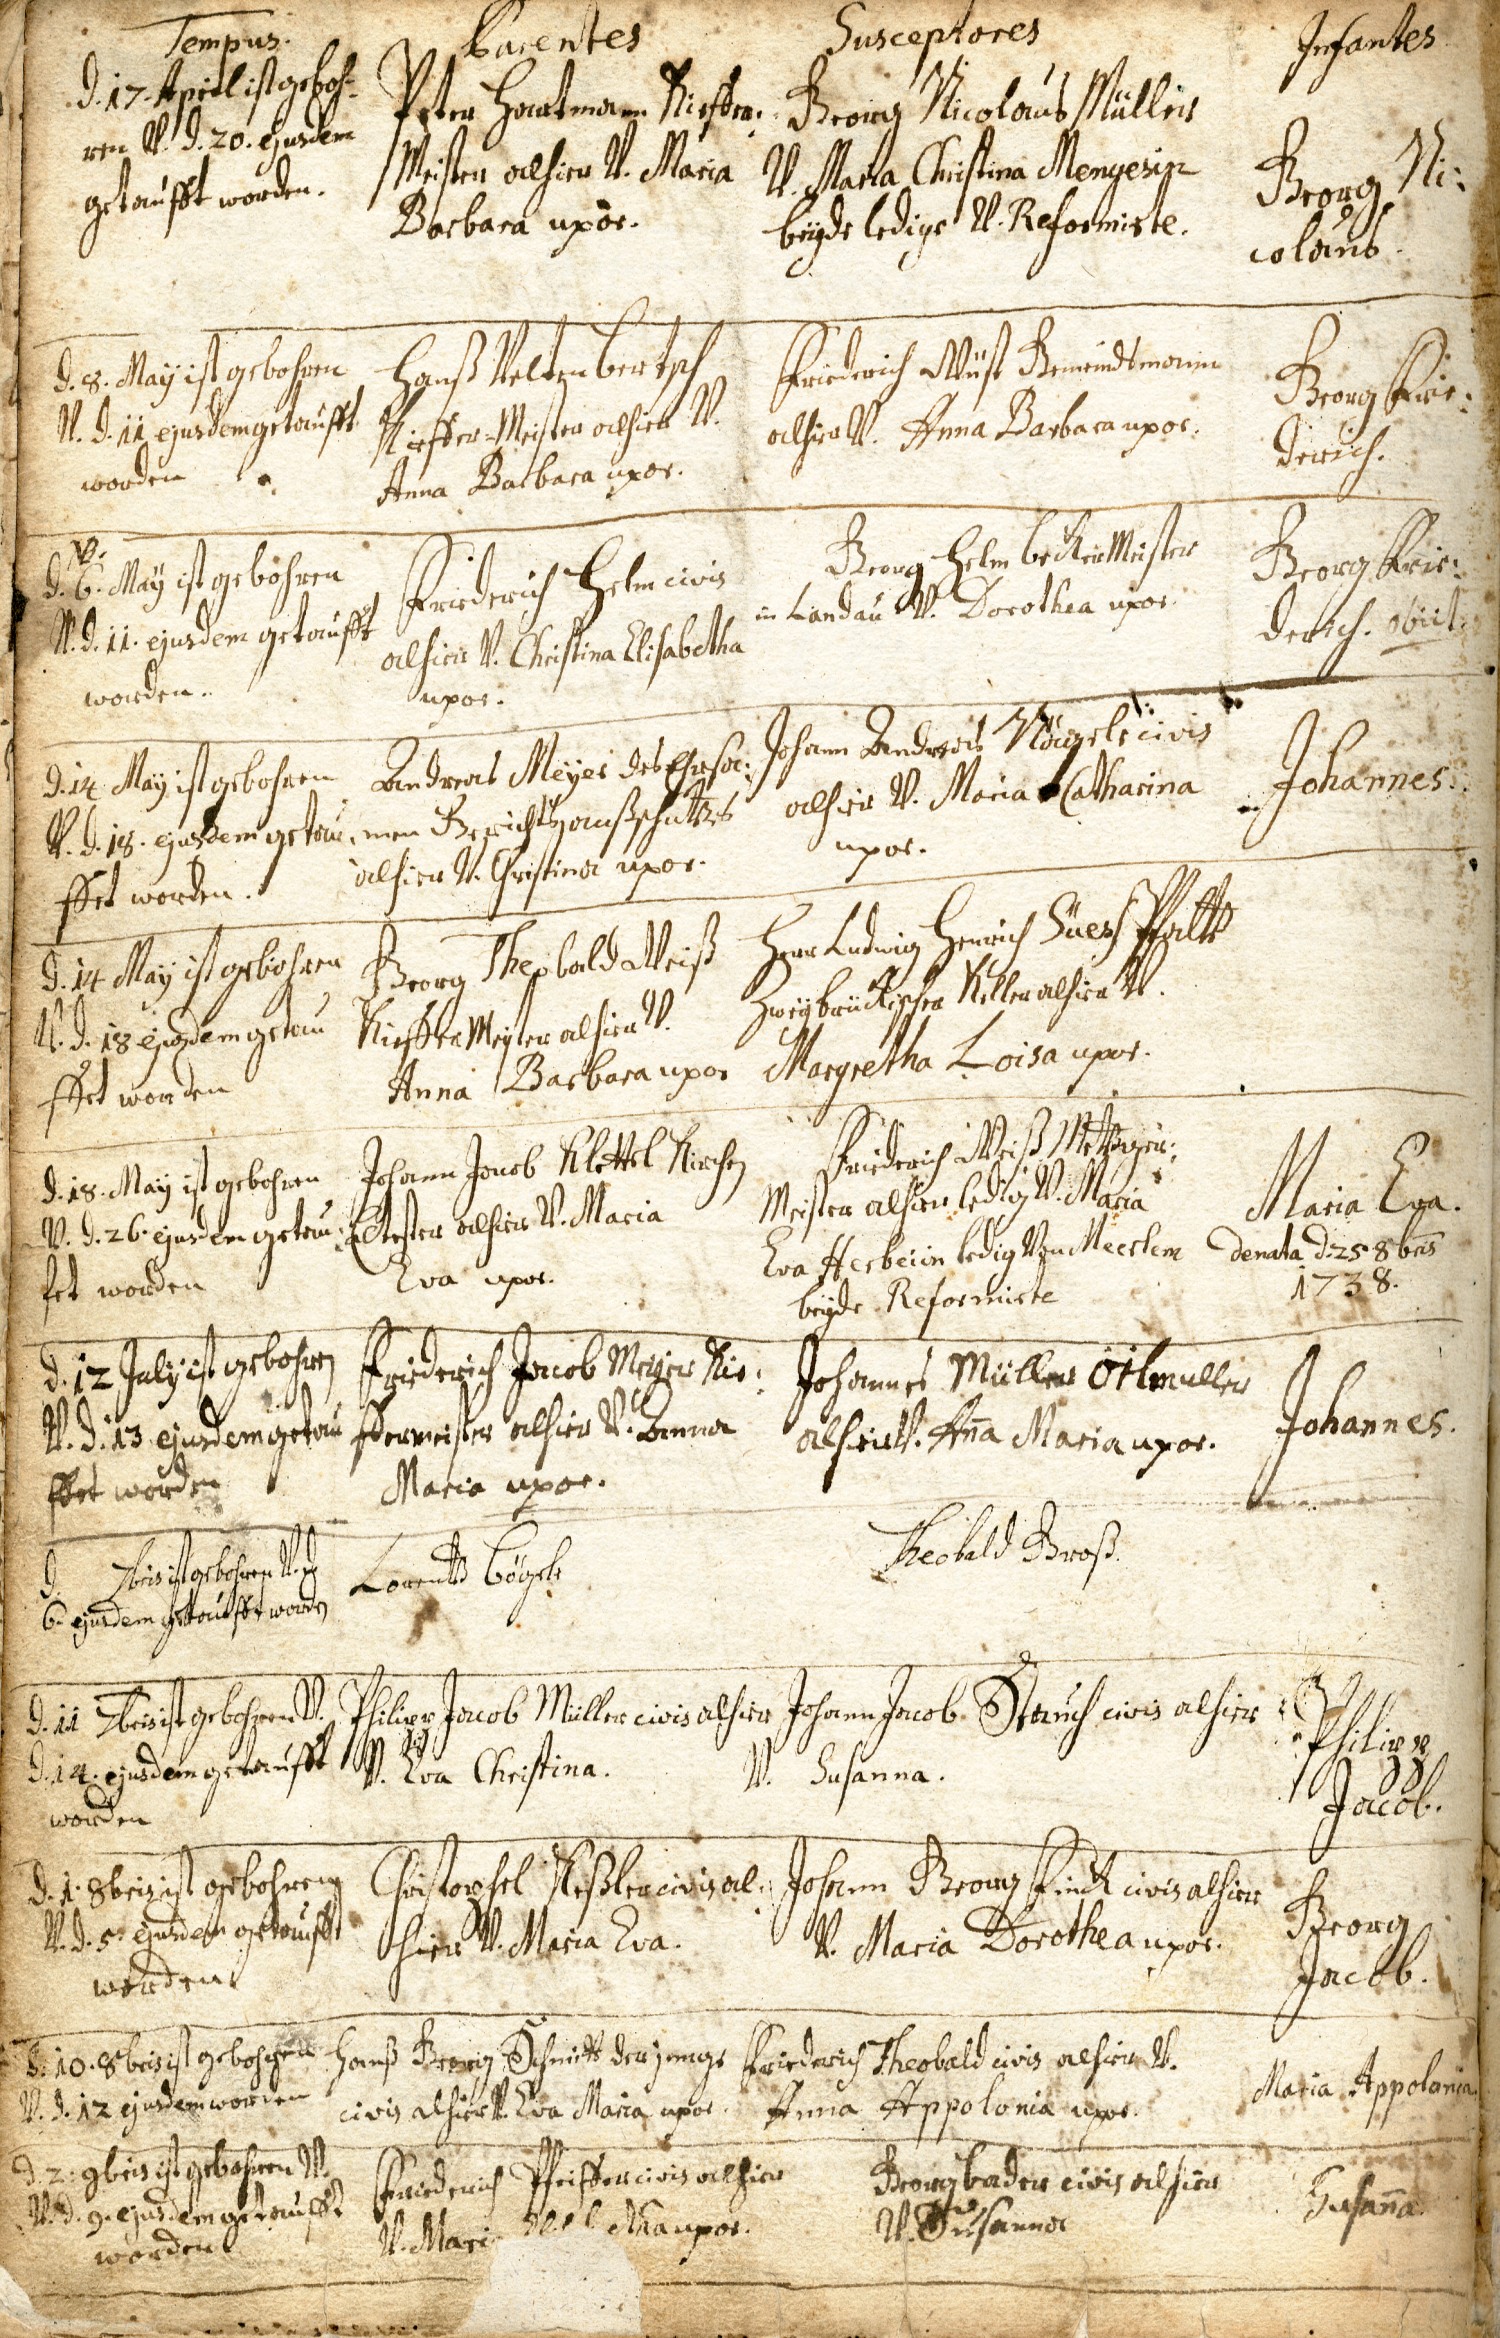 Tempus. Parentes Susceptores Infantes
d. 17. April ist geboh-
ren V. d. 20. ejusdem
getaufft worden.
Peter Hartmann Kieffer:
Meister alhier V. Maria
Barbara uxor.
Georg Nicolaus Müller
V. Maria Christina Mengesin
beyde ledige V. Reformirte.
Georg Ni:
colaus.
d. 8. May ist gebohren
V. d. 11 ejusdem getaufft
worden
Hanß Velten Bertsch
Kieffer-Meister alhier V.
Anna Barbara uxor.
Friederich Wüst Gemeindtmann
alhier V. Anna Barbara uxor.
Georg Frie:
derich.
NB.
d. 6. May ist gebohren
V. d. 11. ejusdem getaufft
worden.
Friederich Helm civis
alhier V. Christina Elisabetha
uxor.
Georg Helm becker Meister
in Landau V. Dorothea uxor.
Georg Frie:
derich. obiit.
d. 14 May ist gebohren
V. d. 18. ejusdem getau
ffet worden.
Andreas Meyer des Ehrsa:
men Gerichts
alhier V. Christina uxor.
Johann Andreas Nägele civis
alhier V. Maria Catharina
uxor.
Johannes.
d. 14 May ist gebohren
V. d. 18 ejusdem getau
ffet worden
Georg Theobald Weiß
Kieffer Meyster alhier V.
Anna Barbara uxor
Herr Ludwig Henrich Süess Pfaltz
Zweybrückischer Keller alhier V.
Margretha Loisa uxor.
d. 18. May ist gebohren
V. d. 26. ejusdem getau:
fet worden
Johann Jacob Klettel Kirchen
Eltester alhier V. Maria
Eva uxor.
Friederich Weiß Metzger:
Meister alhier ledig V. Maria
Eva Herbein ledig Von Meerlem
beyde Reformirte
Maria Eva.
denata d. 25 8bris
1738.
d. 12 July ist gebohren
V. d. 13 ejusdem getau
ffet worden
Friederich Jacob Meyer Kie:
ffermeister alhier V. Anna
Maria uxor.
Johannes Müller Öilmuller
alhier V. Añna Maria uxor.
Johannes.
d. 7bris ist gebohren V. d
6. ejusdem getaufft worden
Lorentz Bögele
Theobald Groß.
d. 11 7bris ist gebohren V.
d. 14. ejusdem getaufft
worden
Philipp Jacob Müller civis alhier
V. Eva Christina.
Johann Jacob Strauch civis alhier
V. Susanna.
Philipp
Jacob.
d. 1. 8bris ist gebohren
V. d. 5. ejusdem getaufft
worden
Christophel Keßler civis al:
hier V. Maria Eva.
Johann Georg Finck civis alhier
V. Maria Dorothea uxor.
Georg
Jacob.
d. 10. 8bris ist gebohren
V. d. 12 ejusdem worden
Hanß Georg Schmitt der junge
civis alhier V. Eva Maria uxor.
Friederich Theobald civis alhier V.
Anna Appolonia uxor.
Maria Appolonia
d. 2. 9bris ist gebohren V.
V. d. 9. ejusdem getaufft
worden
Friederich Pfeiffer civis alhier
V. Mari uxor.
Georg bader civis alhier
V. Susanna
Susana.